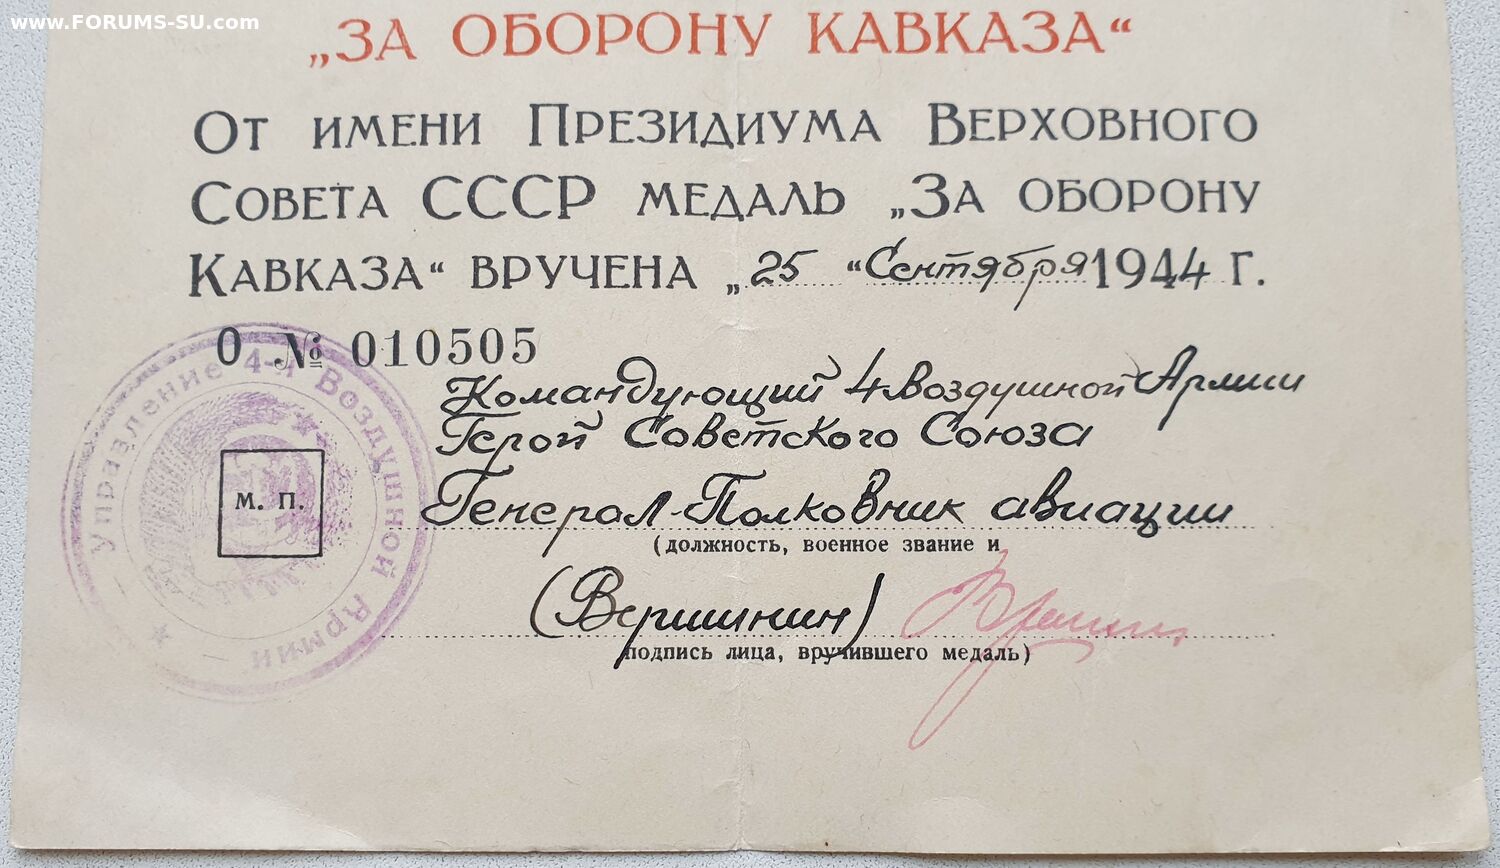 www.FORUMS-SU.com
„ЗА ОБОРОНУ КАВКАЗА“
От имени Президиума Верховного
Совета СССР медаль „За оборону
Кавказа“ вручена „25“ Сентября 1944 г.
О № 010505
Управление 4-й Воздушной Армии
Командующий 4 Воздушной Армии
Герой Советского Союза
Генерал-Полковник авиации
М. П.
(должность, военное звание и
(Вершинин)
подпись лица, вручившего медаль)